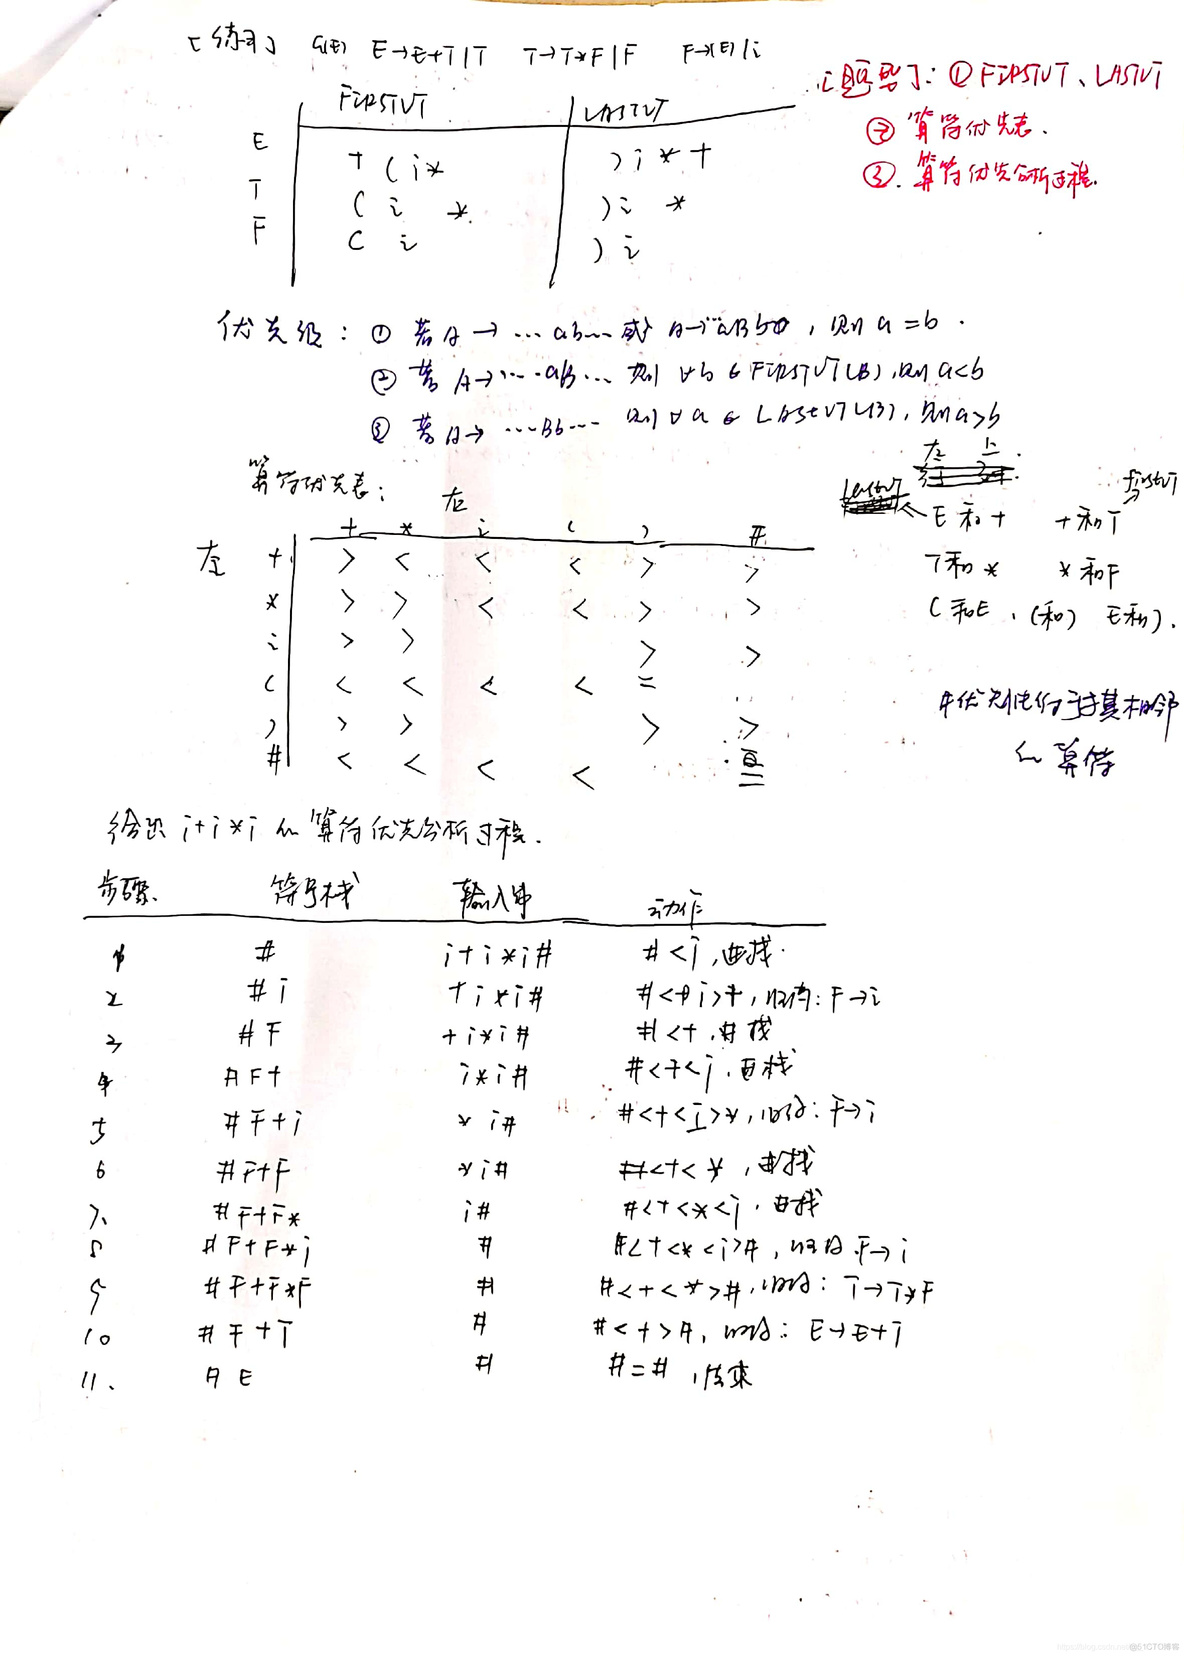 [练习] G(E) E→E+T|T T→T*F|F F→(E)|i
题型: ① FIRSTVT、LASTVT
② 算符优先表.
③. 算符优先分析过程.
FIRSTVT LASTVT
E + ( i * ) i * +
T ( i * ) i *
F ( i ) i
优先级: ① 若A → …ab… 或 A→…aBb…, 则 a = b.
② 若 A→…aB… 则 ∀b ∈ FIRSTVT(B), 则 a<b
③ 若A→ …Bb… 则 ∀a ∈ LASTVT(B), 则a>b
算符优先表:
+ * i ( ) #
左 + > < < < > >
* > > < < > >
i > > > >
( < < < < =
) > > > >
# < < < < =
左 上
lastvT firstvT
E 和 + +和T
T和* *和F
(和E, (和) E和).
#优先性低于与其相邻
的算符
给出 i+i*i 的算符优先分析过程.
步骤 符号栈 输入串 动作
1 # i+i*i# #<i,进栈.
2 #i +i*i# #<i>+,归约: F→i
3 #F +i*i# #<+,进栈
4 #F+ i*i# #<+<i,进栈
5 #F+i *i# #<+<i>*,归约: F→i
6 #F+F *i# #<+<*,进栈
7. #F+F* i# #<+<*<i,进栈
8 #F+F*i # #<+<*<i>#,归约 F→i
9 #F+F*F # #<+<*>#,归约: T→T*F
10 #F+T # #<+>#,归约: E→E+T
11. #E # #=#,结束
@51CTO博客